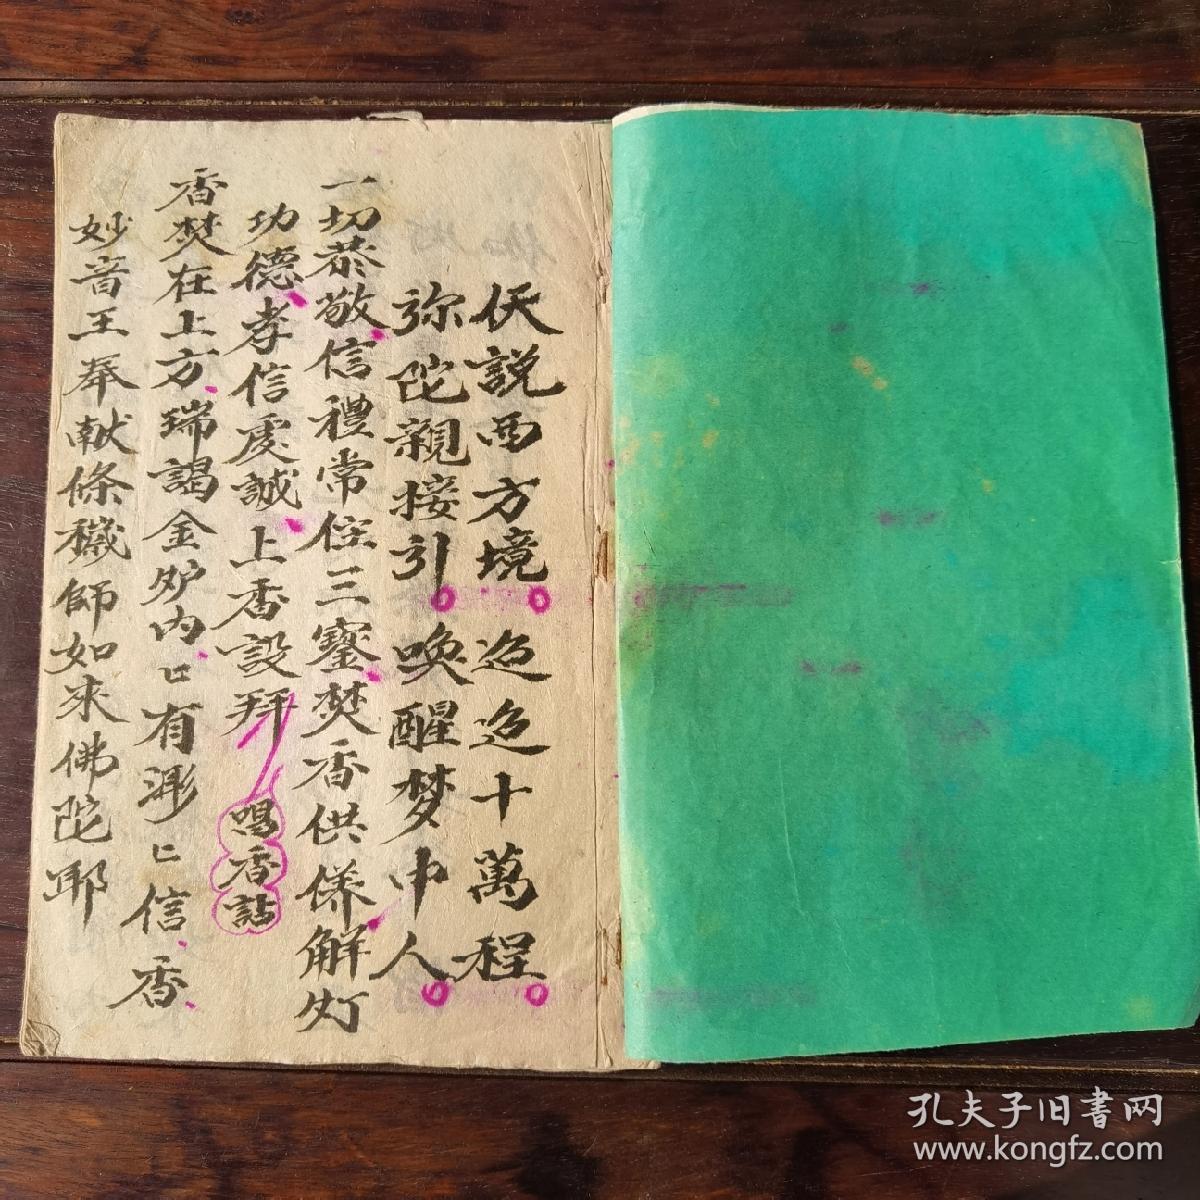 仸説西方境。迢迢十萬程。
弥陀親接引。喚醒梦中人。
一切恭敬、信禮常住三寳、焚香供俻、解灯
功德、孝信虔誠、上香設拜
唱香讃
香焚在上方、瑞謁金炉内、口有渺匕信、香、
妙音王奉献條穢師如來佛陀耶
孔夫子旧書网
www.kongfz.com